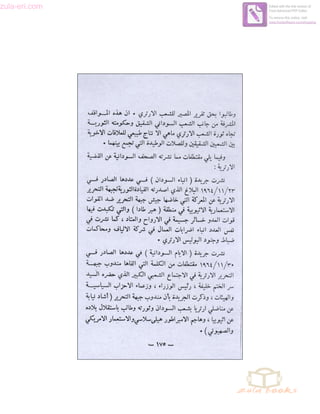 zula-eri.com
Edited with the trial version of
Foxit Advanced PDF Editor
To remove this notice, visit:
www.foxitsoftware.com/shopping
وطالبوا بحق تقرير المصير للشعب الارتري • ان هذه المــواقف
المشرفة من جانب الشعب السوداني الشقيق وحكومته الثوريــة
تجاه ثورة الشعب الارتري ماهي الا نتاج طبيعي للعلاقات الاخوية
بين الشعبين الشقيقين وللصلات الوطيدة التي تجمع بينهما •
وفيما يلي مقتطفات مما نشرته الصحف السودانية عن القضية
الارترية :
نشرت جريدة ( انباء السودان ) فــي عددها الصادر فــي
١٩٦٤/١١/٢٣ البلاغ الذي اصدرته القيادةالثورية لجبهة التحرير
الارترية عن المعركة التي خاضها جيش جبهة التحرير ضد القوات
الاستعمارية الاثيوبية في منطقة ( هبر طادا ) والتي تكبدت فيها
قوات العدو خسائر جسيمة في الارواح والعتاد ، كما نشرت في
نفس العدد انباء اضرابات العمال في شركة الالياف ومحاكمات
ضباط وجنود البوليس الارتري •
نشرت جريدة ( الايام السودانية ) في عددها الصادر فــي
١٩٦٤/١١/٣٠ مقتطفات من الكلمة التي القاها مندوب جبهــة
التحرير الارترية في الاجتماع الشعبي الكبير الذي حضره السيد
سر الختم خليفة ، رئيس الوزراء ، وزعماء الاحزاب السياسيــة
والهيئات ، وذكرت الجريدة بأن مندوب جهة التحرير ( أشاد نيابة
عن مناضلي ارتريا بشعب السودان وثورته وطالب باستقلال بلاده
عن اثيوبيا ، وهاجم الامبراطور هيلي سلاسي والاستعمار الامريكي
والصهيوني ) •
— ١٧٥ —
zula books